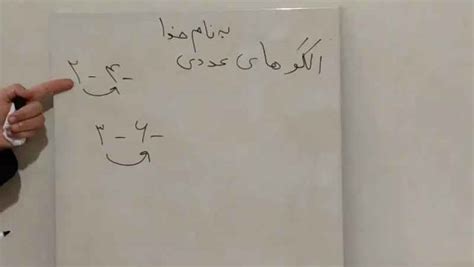 به نام خدا
الگو های عددی
۲ - ۴ -
۳ - ۶ -